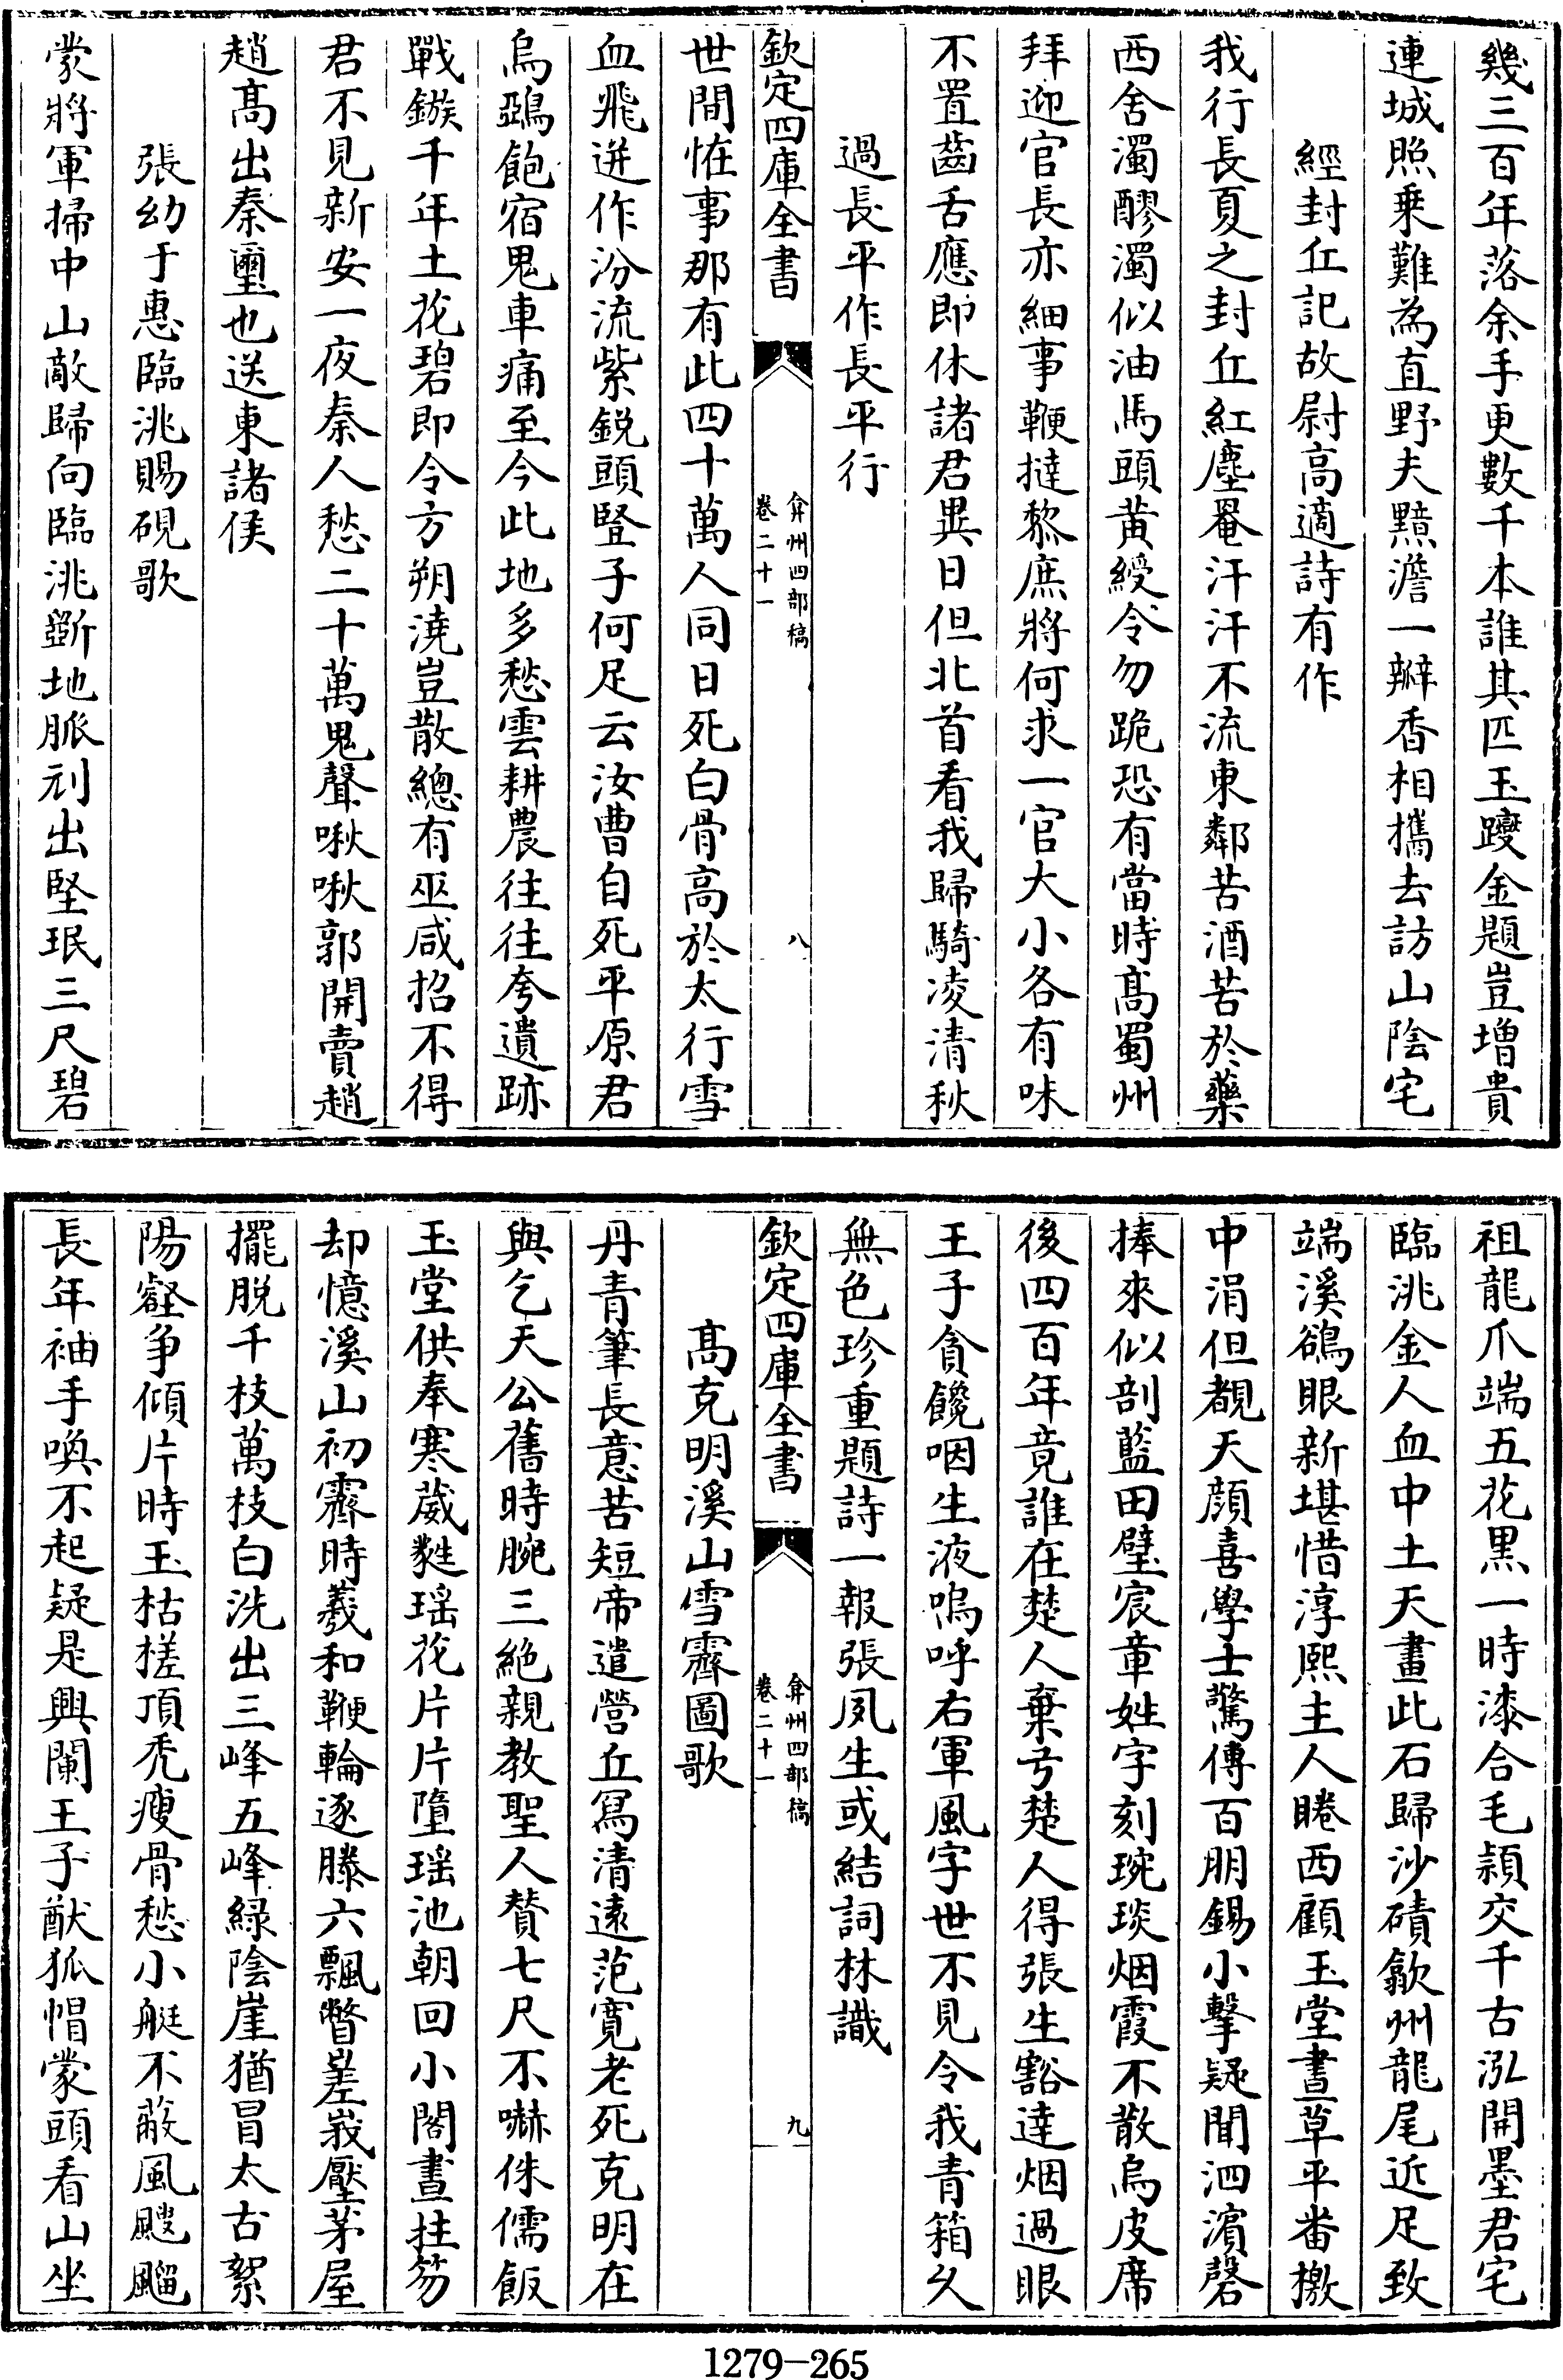 幾三百年落余手更數千本誰其匹玉躞金題豈增貴
連城照乗難為直野夫黯澹一瓣香相攜去訪山陰宅
經封丘記故尉高適詩有作
我行長夏之封丘紅塵罨汗汗不流東鄰苦酒苦於藥
西舍濁醪濁似油馬頭黄綬令勿跪恐有當時髙蜀州
拜迎官長亦細事鞭撻黎庶將何求一官大小各有味
不置齒舌應即休諸君異日但北首看我歸騎凌清秋
過長平作長平行
欽定四庫全書
弇州四部稿
卷二十一
八
世間恠事那有此四十萬人同日死白骨高於太行雪
血飛迸作汾流紫鋭頭豎子何足云汝曹自死平原君
烏鵶飽宿鬼車痛至今此地多愁雲耕農往往夸遺跡
戰鏃千年土花碧即令方朔澆豈散總有巫咸招不得
君不見新安一夜秦人愁二十萬鬼聲啾啾郭開賣趙
趙髙出秦璽也送東諸侯
張幼于惠臨洮賜硯歌
蒙將軍掃中山敵歸向臨洮斷地脈刓出堅珉三尺碧
祖龍爪端五花黒一時漆合毛穎交千古泓開墨君宅
臨洮金人血中土天畫此石歸沙磧歙州龍尾近足致
端溪鵒眼新堪惜淳熙主人睠西顧玉堂書草平畨檄
中涓但覩天顔喜學士驚傳百朋錫小擊疑聞泗濵磬
捧來似剖藍田璧宸章姓字刻琬琰烟霞不散烏皮席
後四百年竟誰在楚人棄弓楚人得張生豁達烟過眼
王子貪饞咽生液嗚呼右軍風字世不見令我青箱久
無色珍重題詩一報張夙生或結詞林識
欽定四庫全書
弇州四部稿
卷二十一
九
髙克明溪山雪霽圖歌
丹青筆長意苦短帝遣營丘寫清遠范寛老死克明在
與乞天公舊時腕三絶親教聖人賛七尺不嚇侏儒飯
玉堂供奉寒葳甤瑶花片片墮瑶池朝回小閣晝拄笏
却憶溪山初霽時羲和鞭輪逐滕六飄瞥嵳峩壓茅屋
擺脱千枝萬枝白洗出三峰五峰緑陰崖猶冒太古絮
陽壑争傾片時玉枯槎頂秃瘦骨愁小艇不蔽風颼飀
長年袖手喚不起疑是興闌王子猷狐帽蒙頭看山坐
1279—265